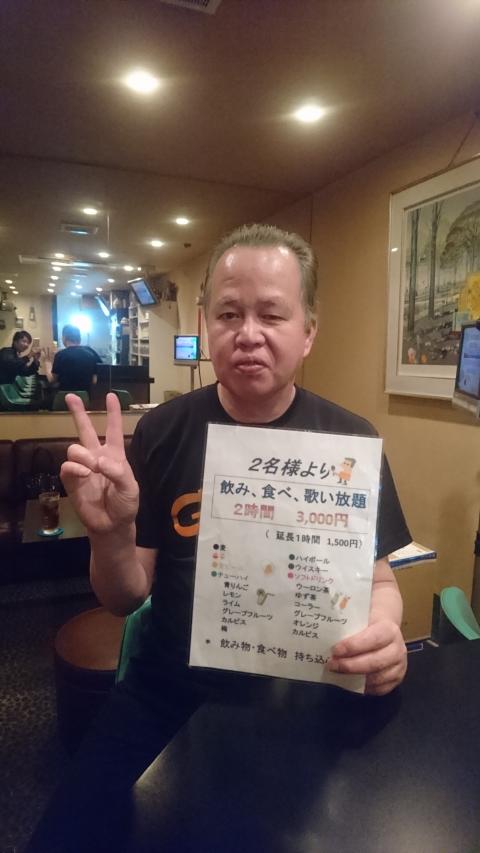 2名様より
飲み、食べ、歌い放題
2時間 3,000円
( 延長1時間 1,500円)
●麦
●生ビール
●チューハイ
青りんご
レモン
ライム
グレープフルーツ
カルピス
梅
●ハイボール
●ウイスキー
●ソフトドリンク
ウーロン茶
ゆず茶
コーラー
グレープフルーツ
オレンジ
カルピス
* 飲み物・食べ物 持ち込